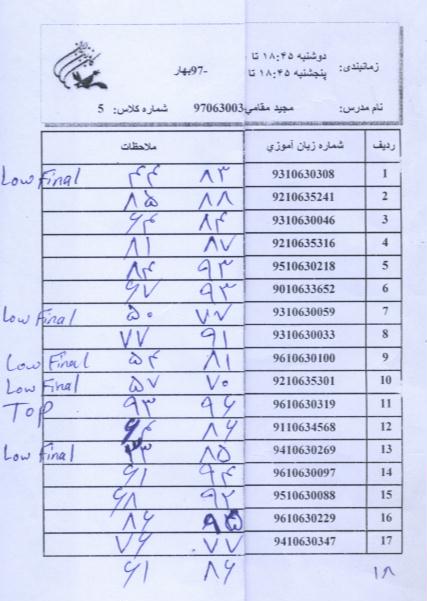 زمانبندی: دوشنبه ۱۸:۴۵ تا
پنجشنبه ۱۸:۴۵ تا
-97بهار
نام مدرس: مجید مقامی 97063003 شماره کلاس: 5
ردیف شماره زبان آموزي ملاحظات
1 9310630308 ۸۳ ۴۴ Low Final
2 9210635241 ۸۸ ۸۵
3 9310630046 ۸۴ ۶۴
4 9210635316 ۸۷ ۸۱
5 9510630218 ۹۳ ۸۴
6 9010633652 ۹۳ ۶۷
7 9310630059 ۷۷ ۵۰ Low Final
8 9310630033 ۹۱ ۷۷
9 9610630100 ۸۱ ۵۴ Low Final
10 9210635301 ۷۰ ۵۷ Low Final
11 9610630319 ۹۶ ۹۳ Top
12 9110634568 ۸۶ ۶۴
13 9410630269 ۸۵ ۳۳ Low Final
14 9610630097 ۹۴ ۶۱
15 9510630088 ۹۲ ۶۸
16 9610630229 ۹۵ ۸۶
17 9410630347 ۷۷ ۷۶
۱۸ ۸۶ ۶۱